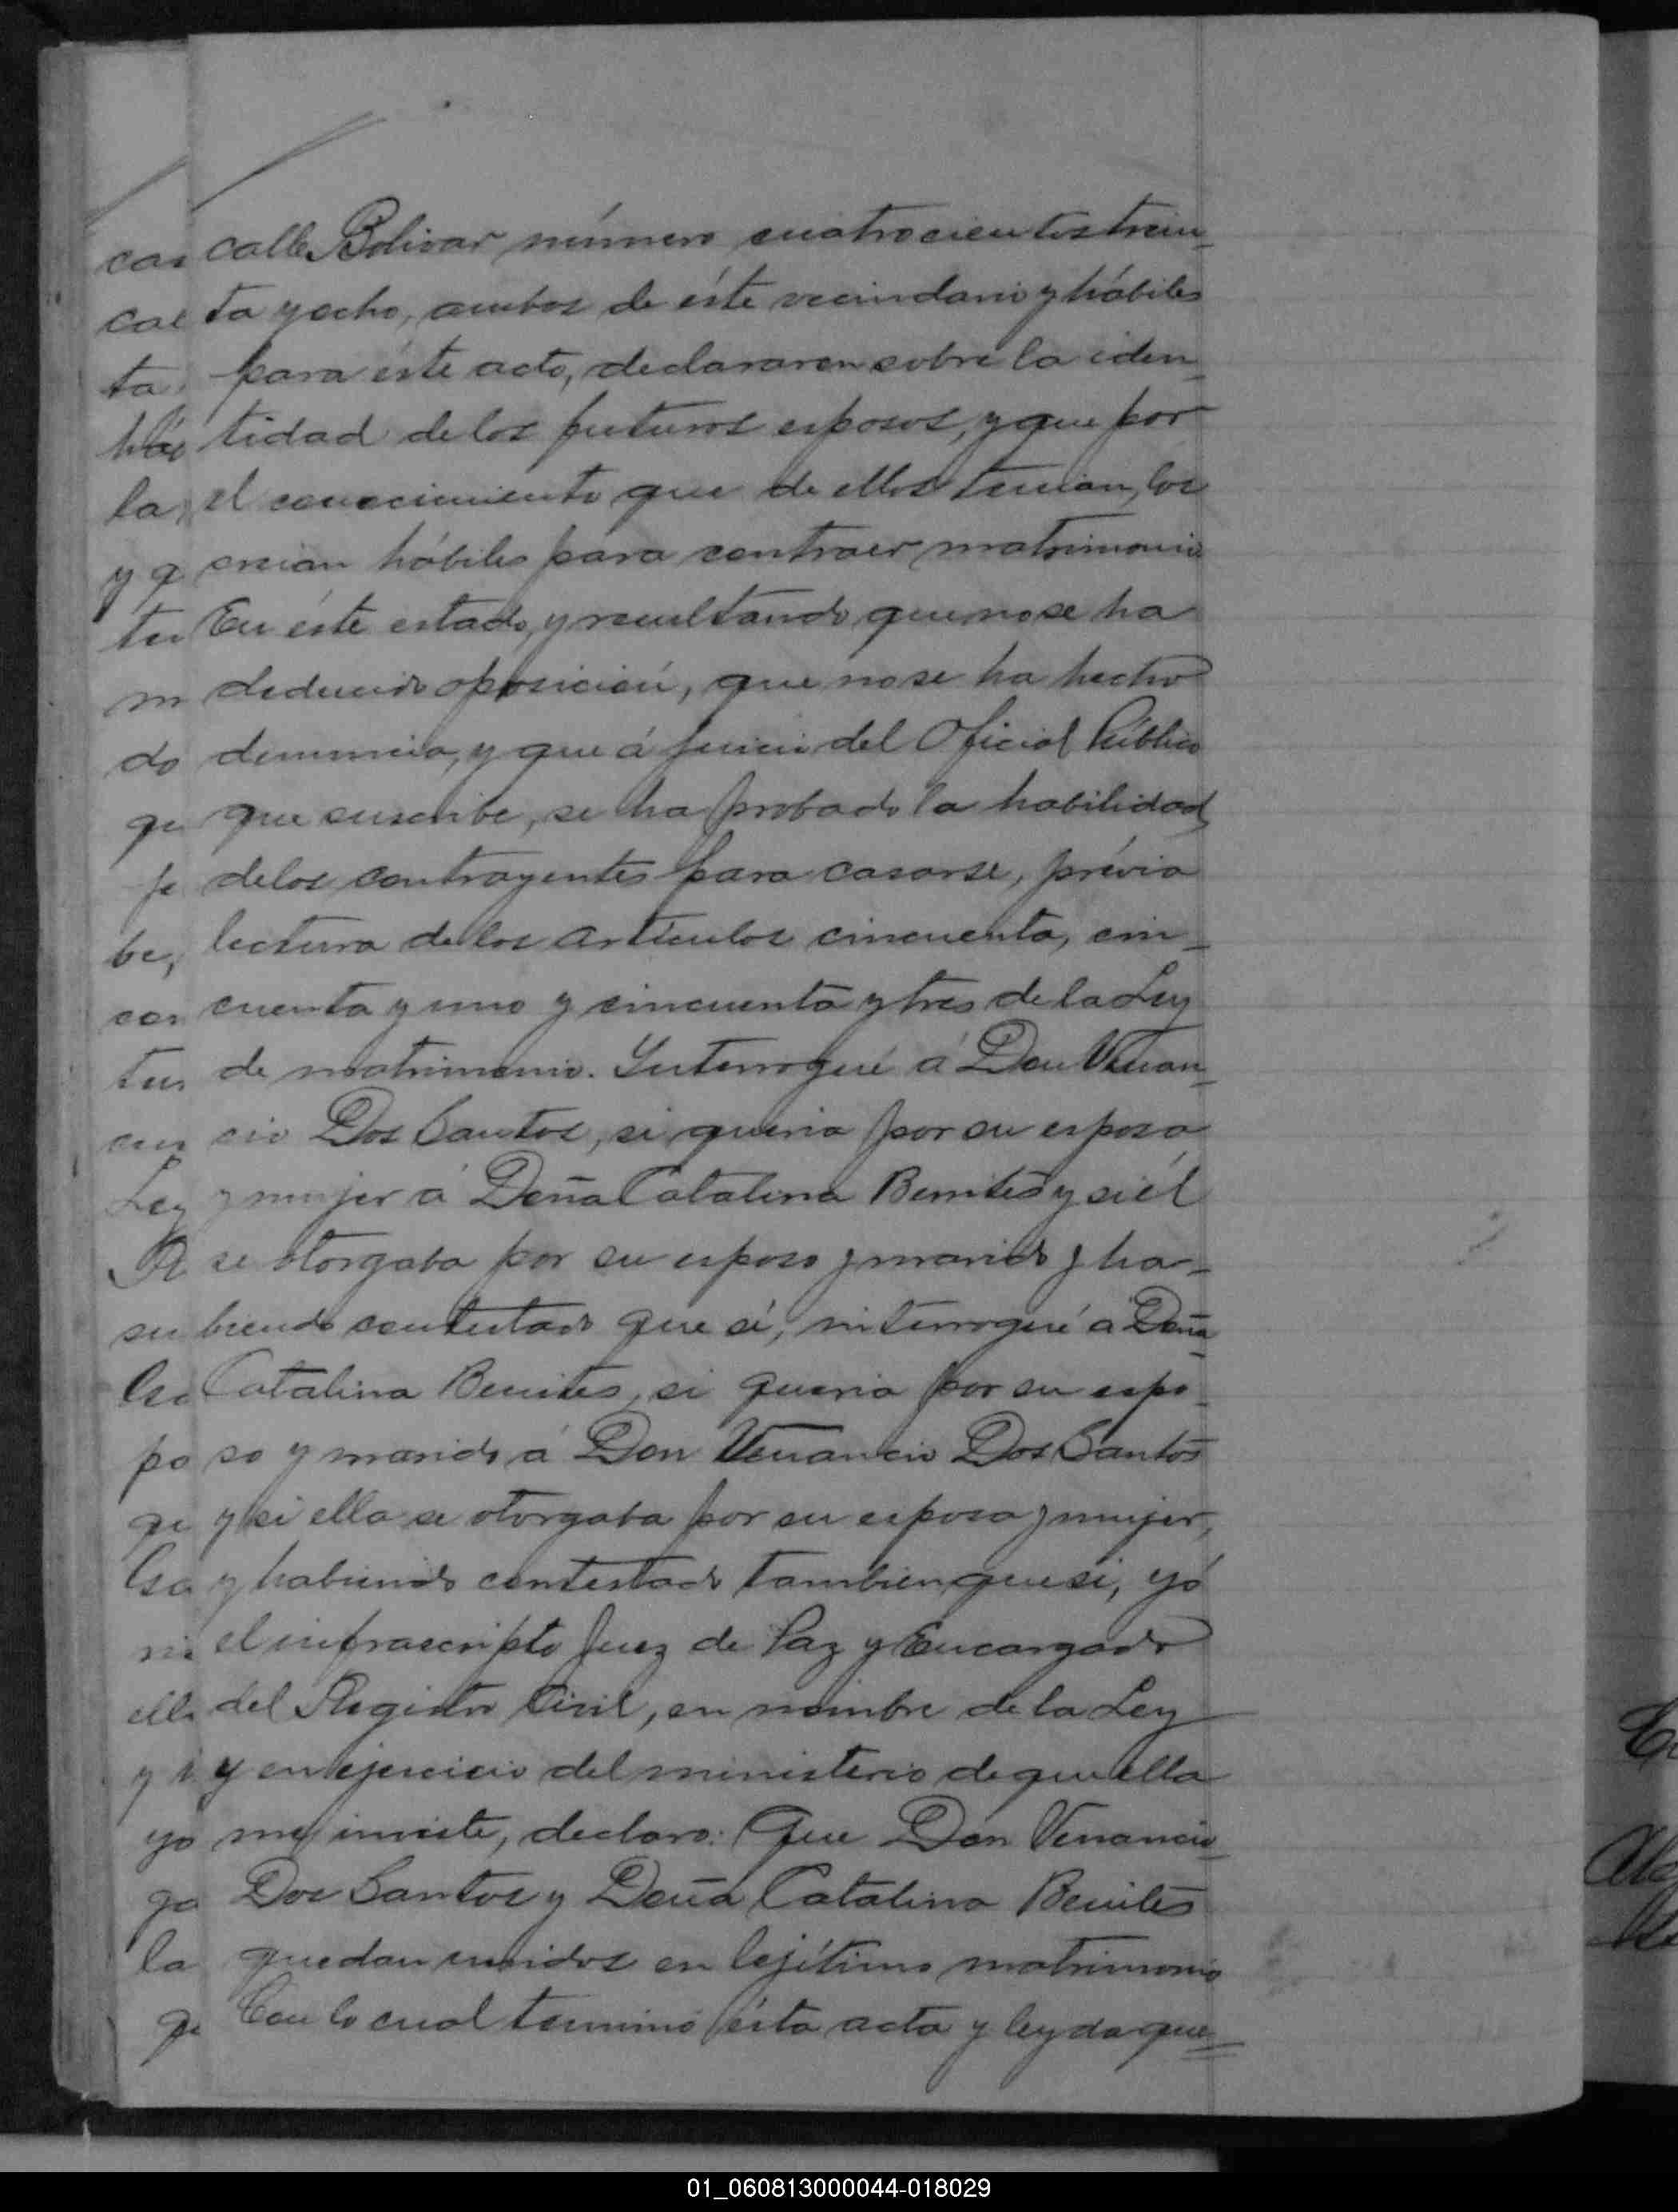 calle Bolivar número cuatrocientos trein_
ta y ocho, ambos de éste vecindario y hábiles
para éste acto, declararon sobre la iden_
tidad de los futuros esposos, y que por
el conocimiento que de ellos tenian, los
creian hábiles para contraer matrimonio
En éste estado, y resultando que no se ha
deducido oposición, que no se ha hecho
denuncia, y que á juicio del Oficial Público
que suscribe, se ha probado la habilidad
de los contrayentes para casarse, prévia
lectura de los artículos cincuenta, cin_
cuenta y uno y cincuenta y tres de la Ley
de matrimonio. Interrogué á Don Venan_
cio Dos Santos, si queria por su esposa
y mujer á Doña Catalina Benites y si él
se otorgaba por su esposo y marido y ha_
biendo contestado que sí, interrogué á Doña
Catalina Benites, si queria por su espo_
so y marido á Don Venancio Dos Santos
y si ella se otorgaba por su esposa y mujer,
y habiendo contestado tambien que si, yó
el infrascripto Juez de Paz y Encargado
del Registro Civil, en nombre de la Ley
y en ejercicio del ministerio de que ella
me inviste, declaro: Que Don Venancio
Dos Santos y Doña Catalina Benites
quedan unidos en lejítimo matrimonio
Con lo cual terminó ésta acta y leyda que
can
cae
ta
la
y q
ten
m
do
qu
ju
be,
con
tus
cun
Ley
su
po
qu
ni
ella
y
yo
ga
la
qu
01_060813000044-018029